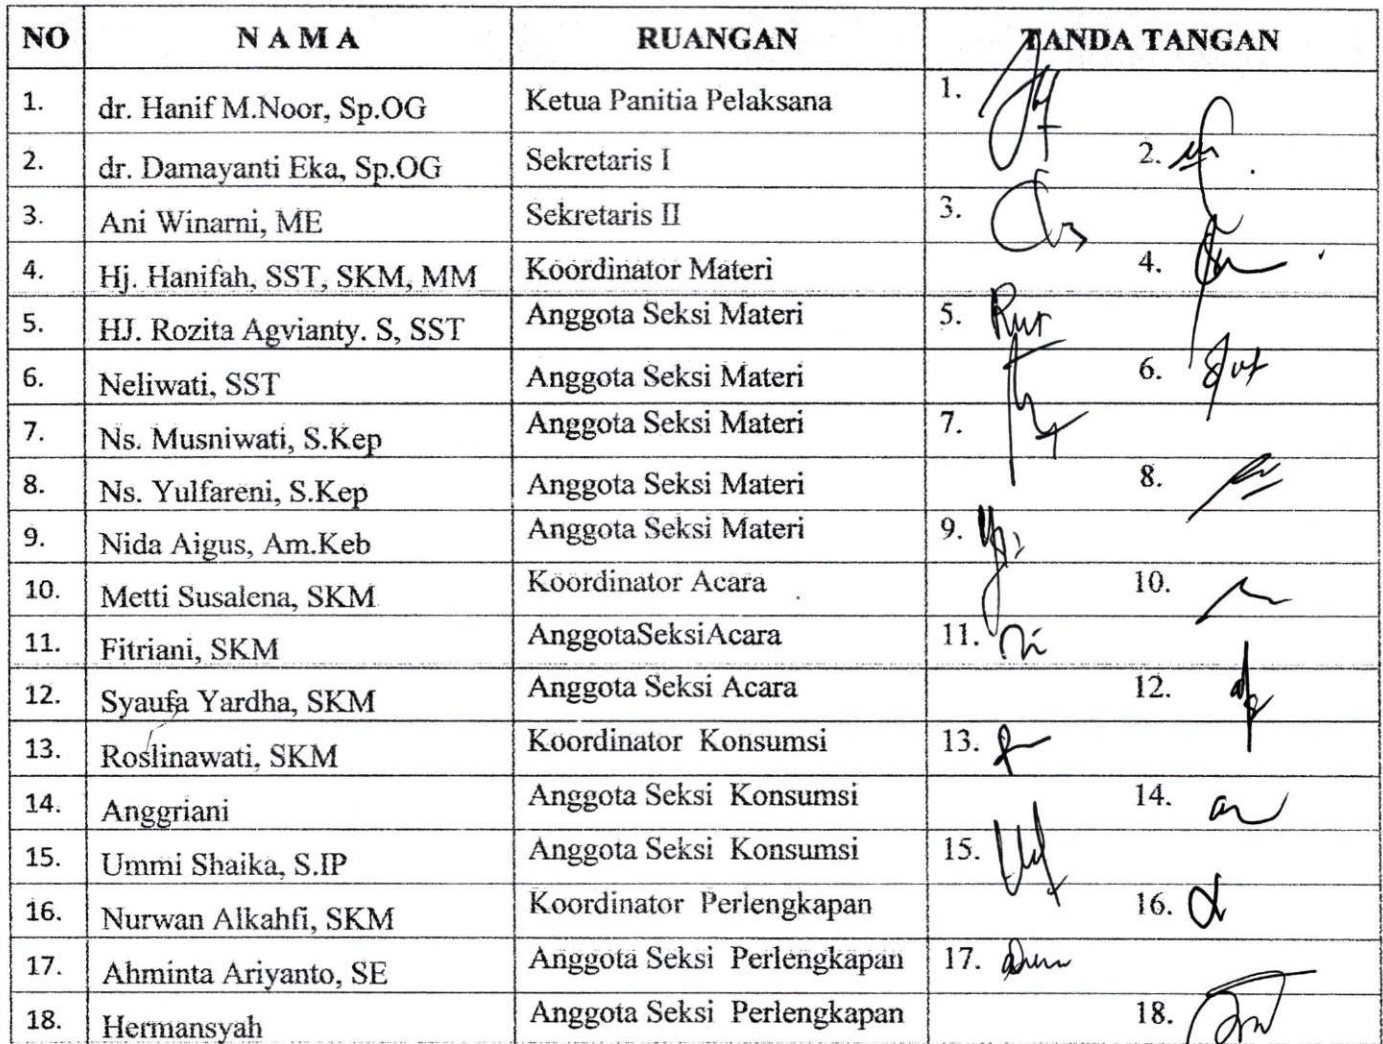 NO N A M A RUANGAN TANDA TANGAN
1. dr. Hanif M.Noor, Sp.OG Ketua Panitia Pelaksana 1.
2. dr. Damayanti Eka, Sp.OG Sekretaris I 2.
3. Ani Winarni, ME Sekretaris II 3.
4. Hj. Hanifah, SST, SKM, MM Koordinator Materi 4.
5. HJ. Rozita Agvianty. S, SST Anggota Seksi Materi 5.
6. Neliwati, SST Anggota Seksi Materi 6.
7. Ns. Musniwati, S.Kep Anggota Seksi Materi 7.
8. Ns. Yulfareni, S.Kep Anggota Seksi Materi 8.
9. Nida Aigus, Am.Keb Anggota Seksi Materi 9.
10. Metti Susalena, SKM Koordinator Acara 10.
11. Fitriani, SKM AnggotaSeksiAcara 11.
12. Syaufa Yardha, SKM Anggota Seksi Acara 12.
13. Roslinawati, SKM Koordinator Konsumsi 13.
14. Anggriani Anggota Seksi Konsumsi 14.
15. Ummi Shaika, S.IP Anggota Seksi Konsumsi 15.
16. Nurwan Alkahfi, SKM Koordinator Perlengkapan 16.
17. Ahminta Ariyanto, SE Anggota Seksi Perlengkapan 17.
18. Hermansyah Anggota Seksi Perlengkapan 18.